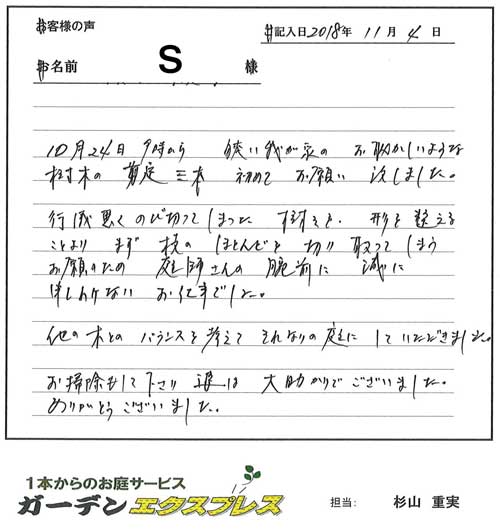 お客様の声
お記入日 2018年 11月 4日
お名前 S 様
10月24日 9時から 狭い我が家の お恥かしいような
樹木の 剪定 三本 初めて お願い 致しました。
行儀悪くのび切ってしまった 樹々を、形を整える
ことより まず 枝の ほとんどを 切り 取ってしまう
お願いため 庭師さんの 腕前に 誠に
申しわけない お仕事でした。
他の木との バランスを考えて それなりの庭に していただきました。
お掃除もして下さり 大助かりでございました。
ありがとうございました。
1本からのお庭サービス
ガーデンエクスプレス
担当: 杉山 重実